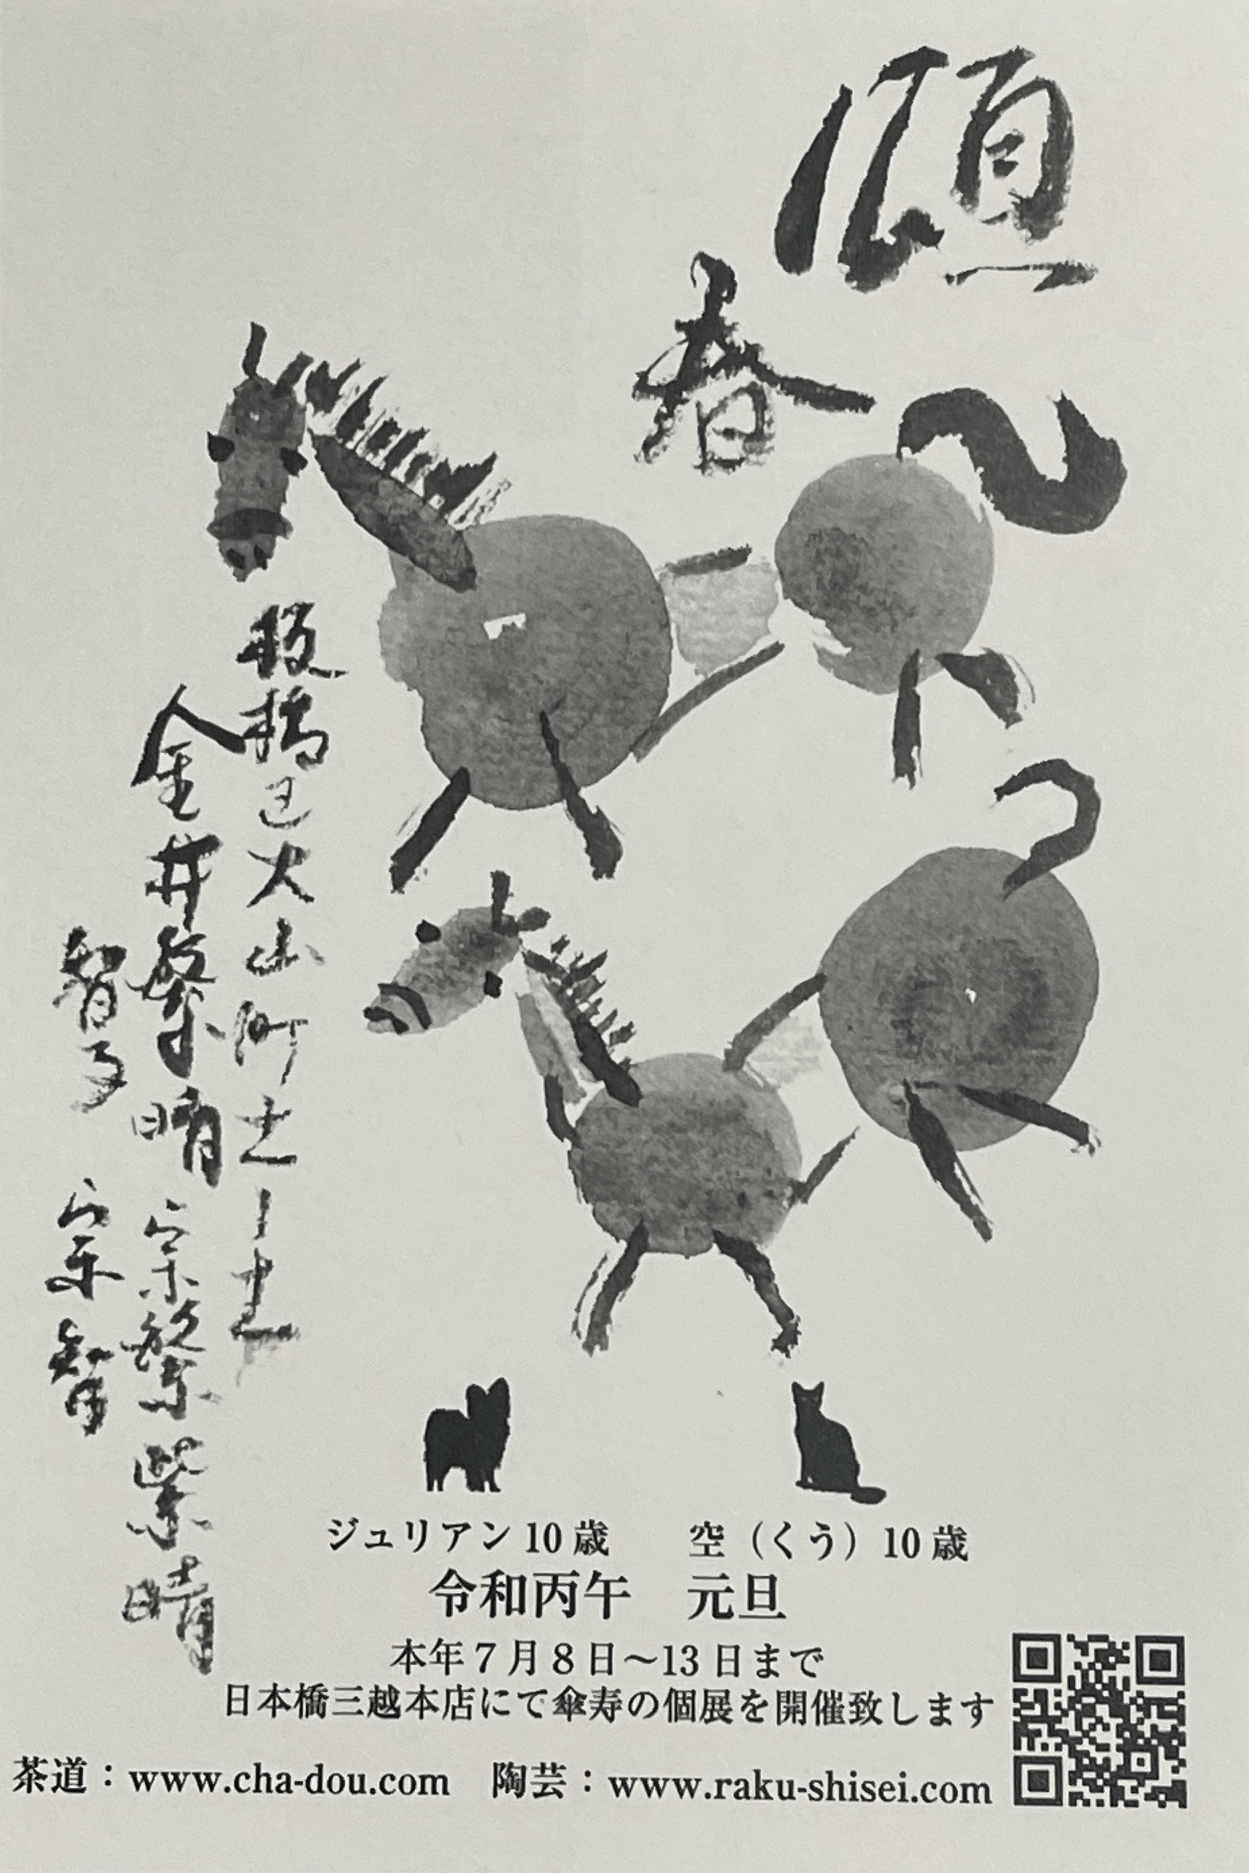 頌春
板橋区大山町
金井繁晴 宗繁 紫晴
智子 宗智
ジュリアン10歳 空（くう）10歳
令和丙午 元旦
本年7月8日〜13日まで
日本橋三越本店にて傘寿の個展を開催致します
茶道：www.cha-dou.com 陶芸：www.raku-shisei.com